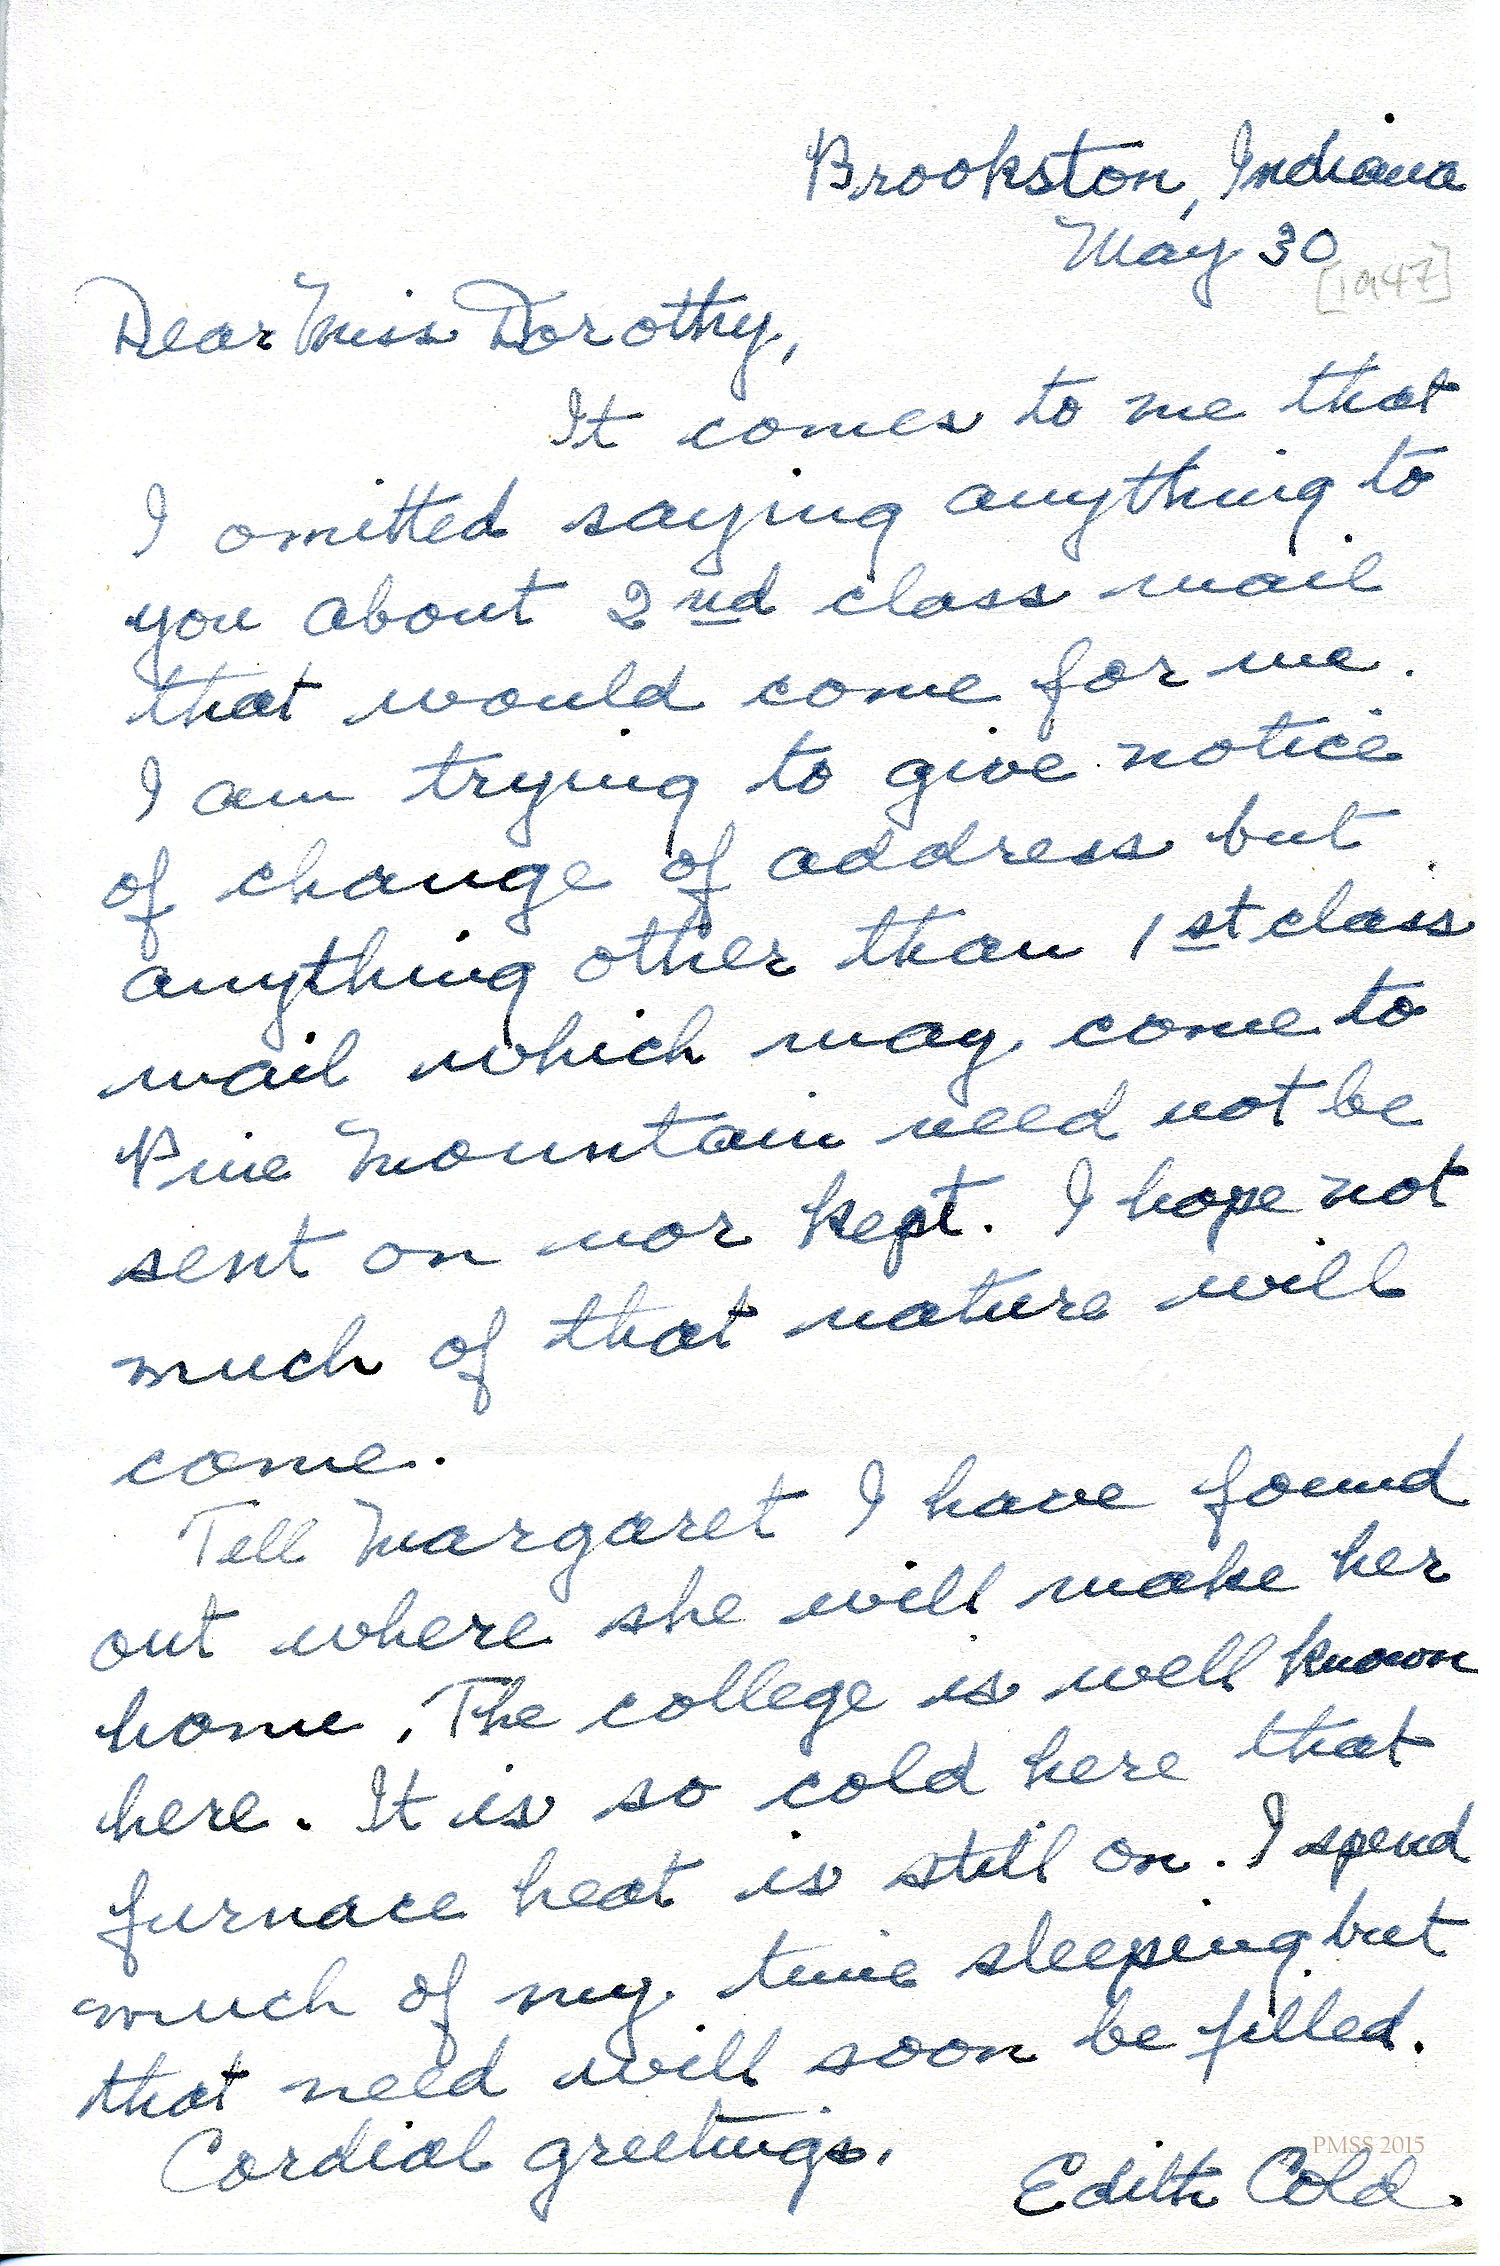 Brookston, Indiana
May 30
[1947]
Dear Miss Dorothy,
It comes to me that
I omitted saying anything to
you about 2nd class mail
that would come for me.
I am trying to give notice
of change of address but
anything other than 1st class
mail which may come to
Pine Mountain need not be
sent on nor kept. I hope not
much of that nature will
come.
Tell Margaret I have found
out where she will make her
home. The college is well known
here. It is so cold here that
furnace heat is still on. I spend
much of my time sleeping but
that need will soon be filled.
Cordial greetings.
PMSS 2015
Edith Cold.